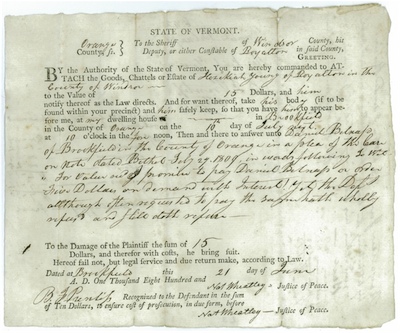 STATE OF VERMONT.
Orange } To the Sheriff of Windsor County, his
County, ss. } Deputy, or either Constable of Royalton in said County,
GREETING.
BY the Authority of the State of Vermont, You are hereby commanded to AT-
TACH the Goods, Chattels or Estate of Hezekiah Young of Royalton in the
County of Windsor
to the Value of 15 Dollars, and him
notify thereof as the Law directs. And for want thereof, take his body (if to be
found within your precinct) and him safely keep, so that you have him to appear be-
fore me, at my dwelling house in Brookfield
in the County of Orange on the 10 day of July next
at 10 o'clock in the fore noon. Then and there to answer unto Daniel Belnap
of Brookfield in the County of Orange in a plea of the Case
on Note dated Bethel July 27 1809 in words following To Wit
For value I promise to pay Daniel Belnap or order
five Dollars on demand with Interest yet the Deft
although often requested to pay the same hath wholly
refused and still doth refuse
To the Damage of the Plaintiff the sum of 15
Dollars, and therefor with costs, he bring suit.
Hereof fail not, but legal service and due return make, according to Law.
Dated at Brookfield this 21 day of June
A. D. One Thousand Eight Hundred and
Nat Wheatley Justice of Peace.
B. Prentiss Recognized to the Defendant in the sum
of Ten Dollars, to ensure cost of prosecution, in due form, before
Nat Wheatley Justice of Peace.